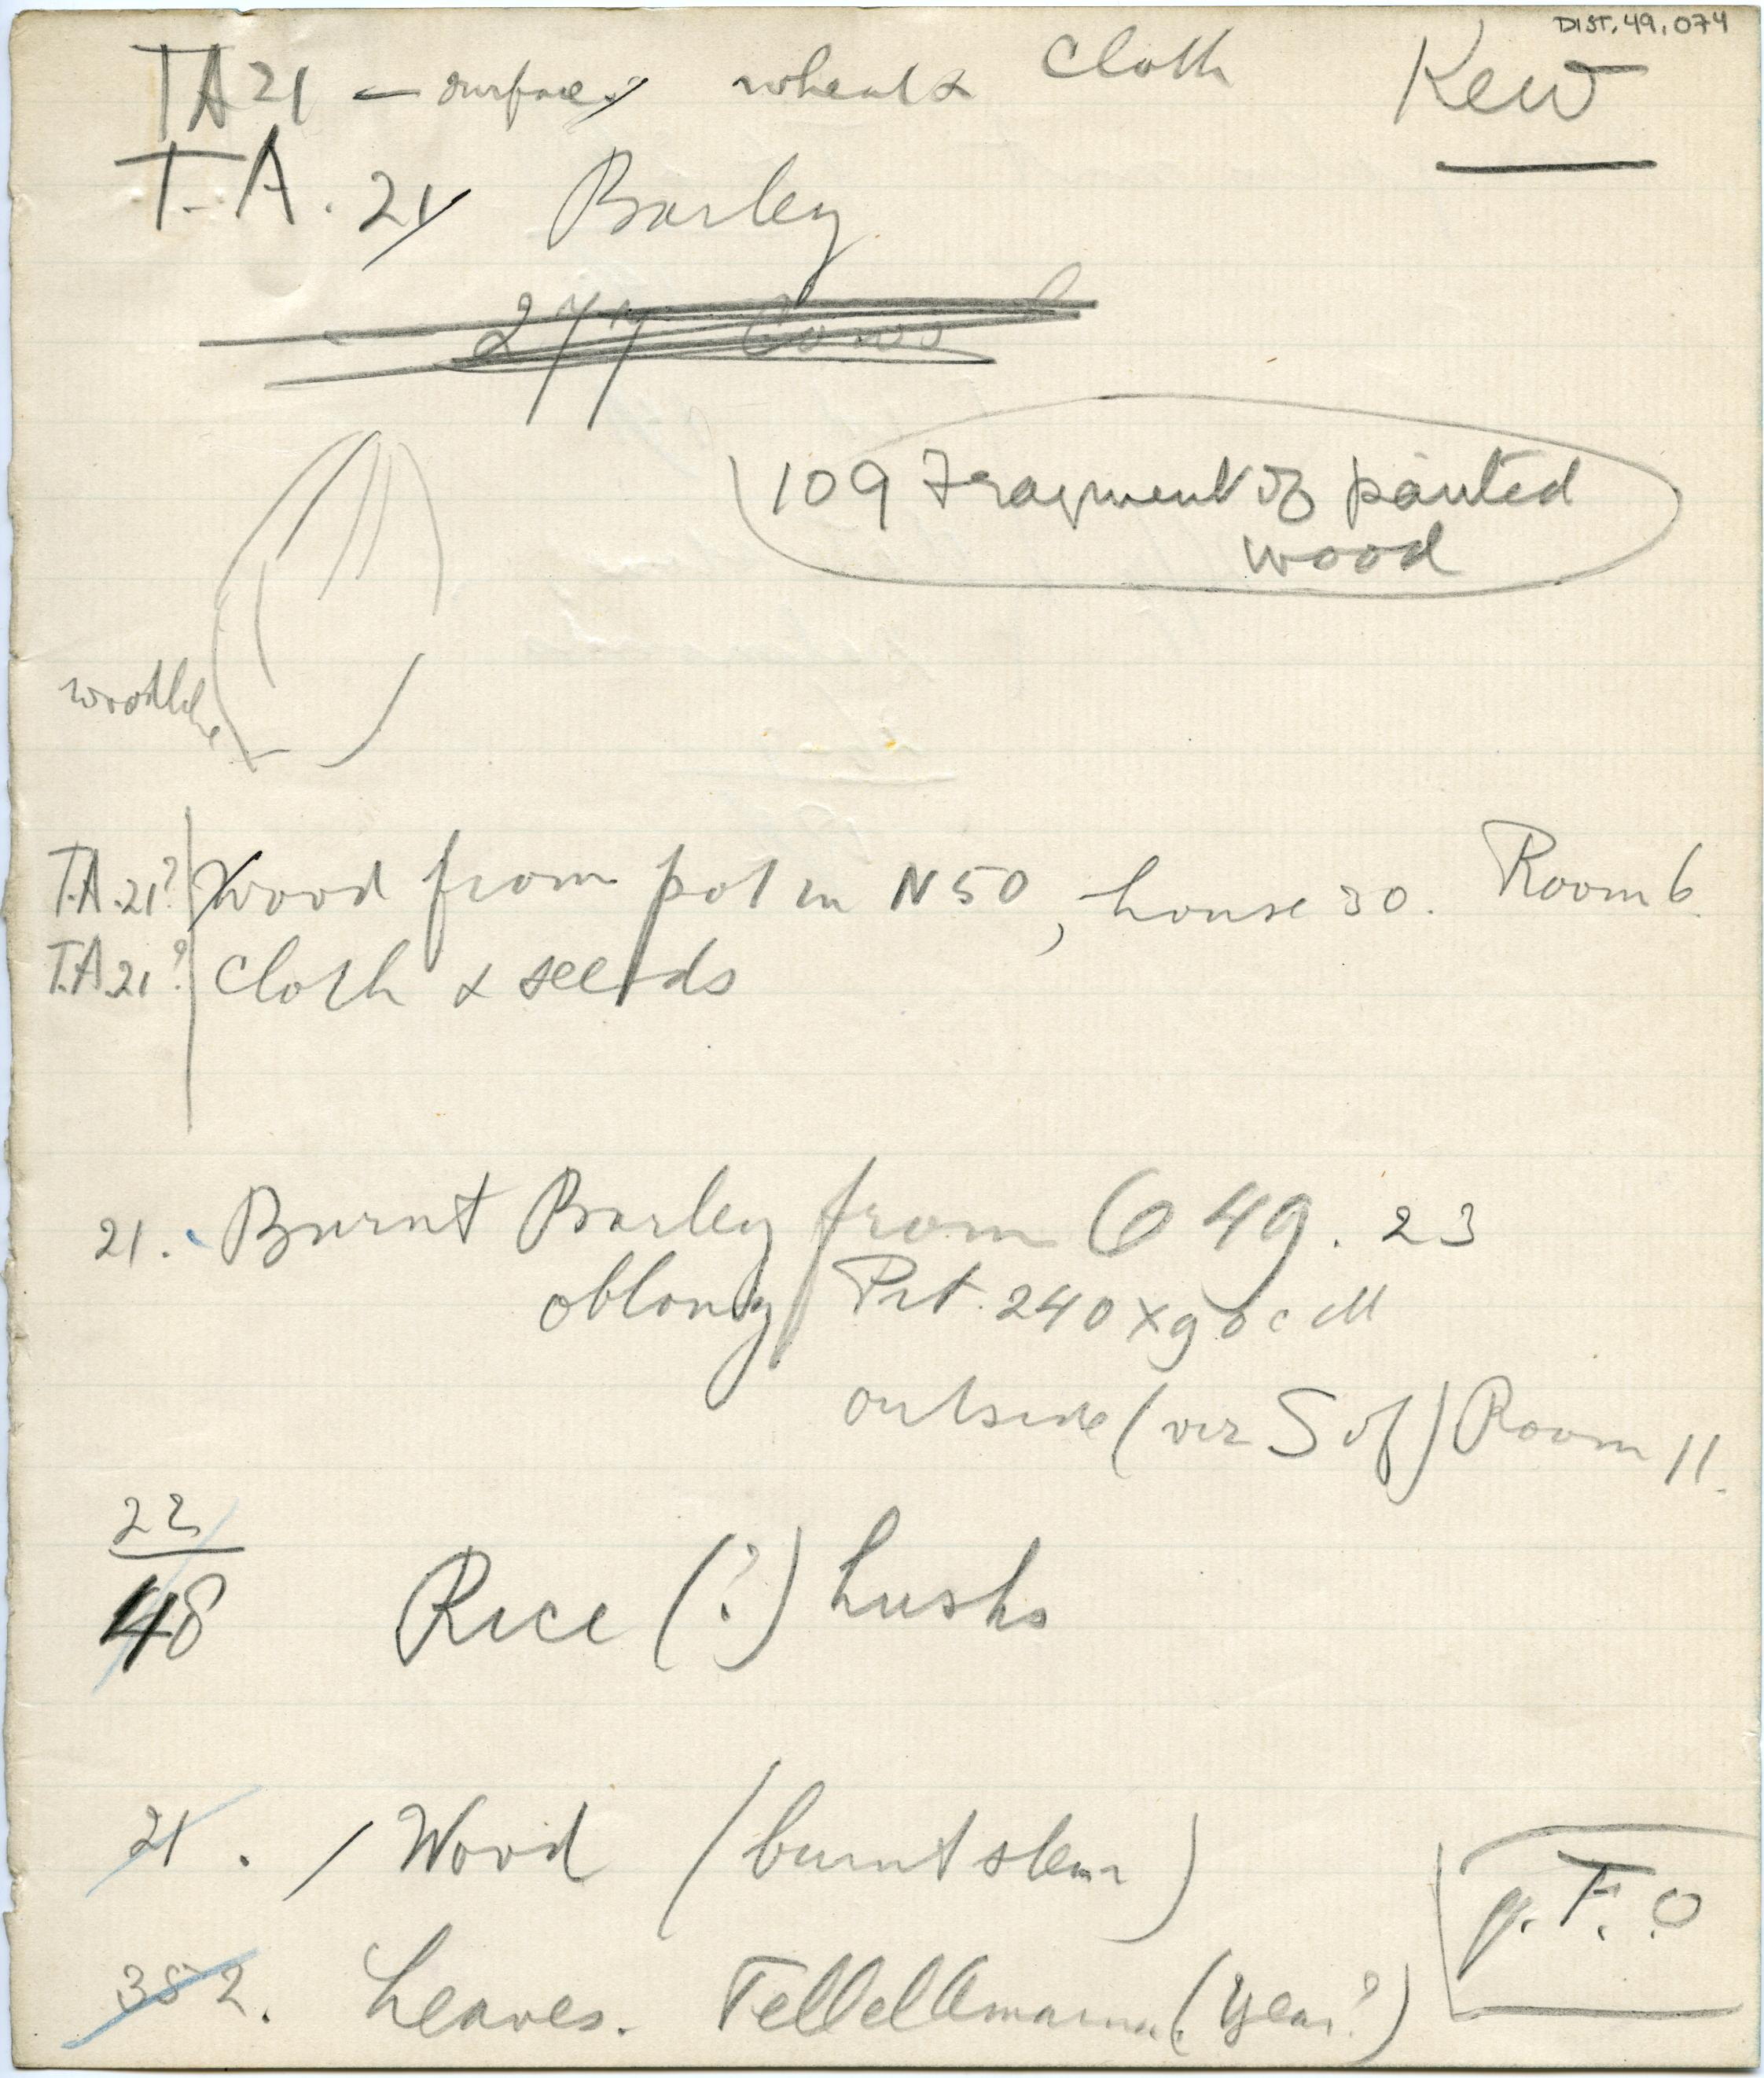 DIST.49.074
TA 21 – surface, wheat & Cloth Kew
T.A. 21 Barley
277
109 Fragment of painted
wood
T.A.21? Wood from pot in N50, house 30. Room 6.
T.A.21? Cloth & seeds
21. Burnt Barley from O 49. 23
oblong Pit. 240 x 90 cM
outside (viz S of) Room 11.
22
48 Rice (?) husks
21. Wood (burnt stem)
382. Leaves. Tell el Amarna. (Year?)
P.T.O